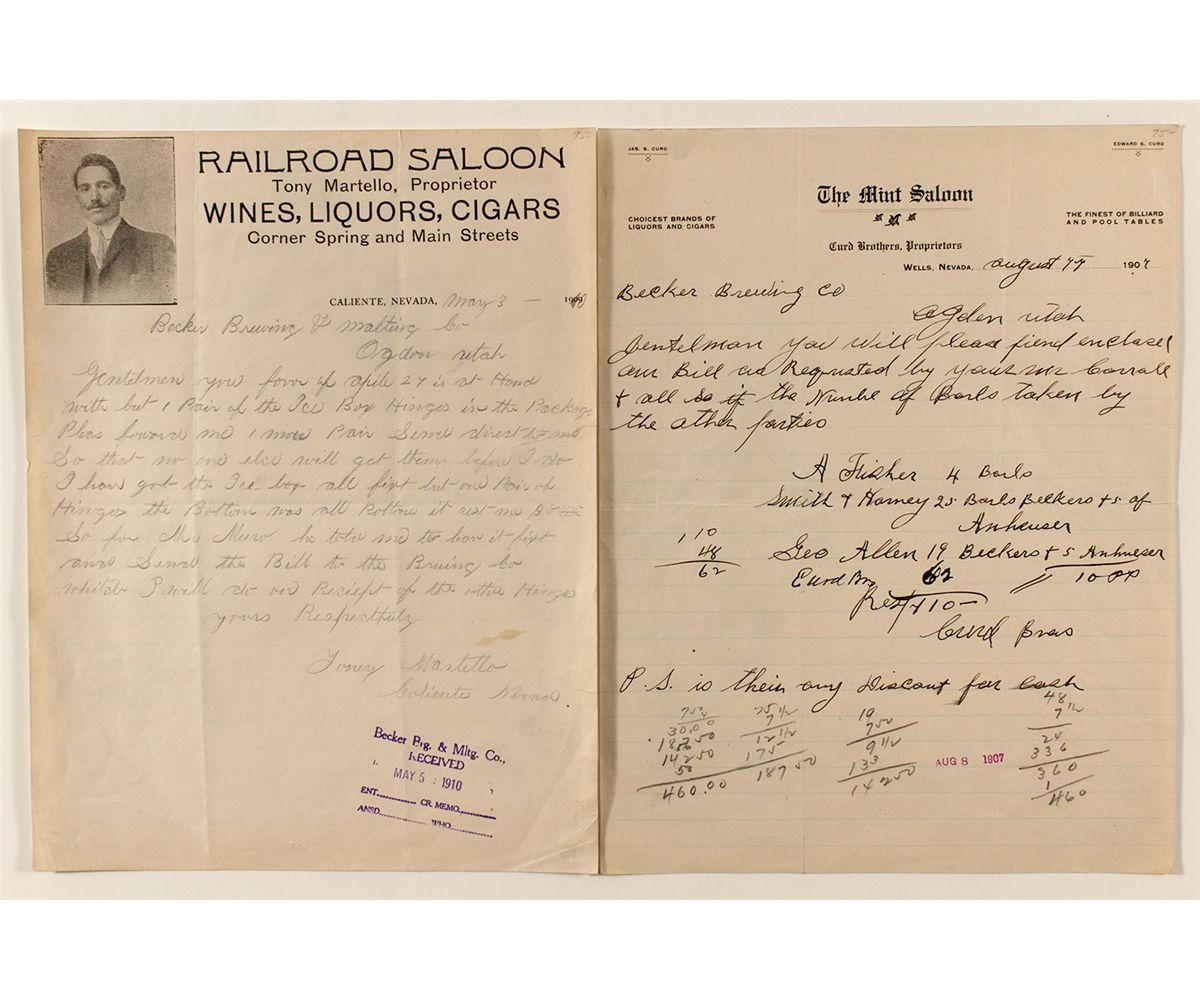 95-
RAILROAD SALOON
Tony Martello, Proprietor
WINES, LIQUORS, CIGARS
Corner Spring and Main Streets
CALIENTE, NEVADA, May 3 - 1910
Becker Brewing & Malting Co
Ogdon utah
Gentelmen you favor of aprile 27 is at Hand
with but 1 Pair of the Ice Box Hinges in the Package
Pleas foward me 1 more Pair Send direct to me
So that no one else will get them before I do
I have got the Ice box all fixt but one Pair of
Hinges the Bottom was all Rotten it cost me
So for Mr Muro he told me to have it fixt
and Send the Bill to the Bruing Co
which I will do on Reciept of the other Hinges
yours Respectfuly
Toney Martello
Caliente Nevad
Becker Brg. & Mltg. Co.,
RECEIVED
MAY 5 1910
ENT. CR. MEMO.
ANSD. WHO
75-
JAS. S. CURD
EDWARD S. CURD
The Mint Saloon
CHOICEST BRANDS OF
LIQUORS AND CIGARS
THE FINEST OF BILLIARD
AND POOL TABLES
Curd Brothers, Proprietors
WELLS, NEVADA, august 7th 1907
Becker Brewing Co
Ogden utah
Jentelman you will please fiend enclosed
our Bill as Requested by your Mr Corrall
& all so the Numbe of Barls taken by
the other parties
A Fisher 4 Barls
Smith & Harney 25 Barls Beckers & 5 of
Anheuser
Geo Allen 19 Beckers & 5 Anheuser
110
48
62
Curd Bro 62
10 00
Resp 110-
Curd Bros
P.S. is their any Discount for cash
7 50
4
30.00
186 50
142 50
50
460.00
25
7 1/2
12 1/2
175
187 50
19
7 50
9 1/2
133
142 50
AUG 8 1907
48
7 1/2
24
336
360
1
460